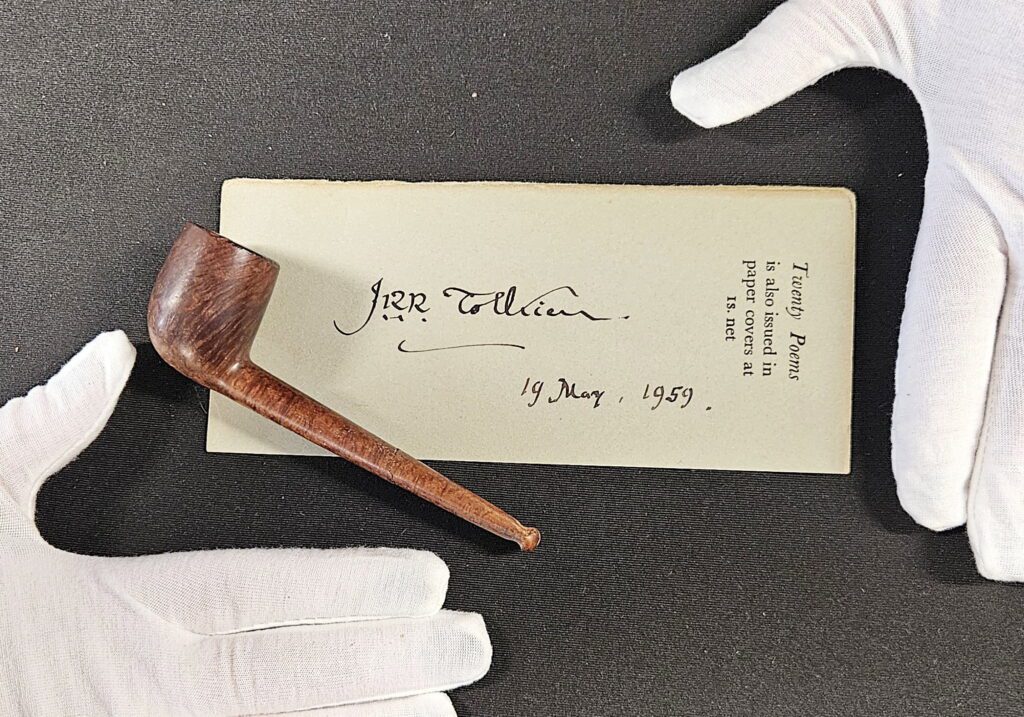 JRR Tolkien.
19 May, 1959.
Twenty Poems
is also issued in
paper covers at
1s. net